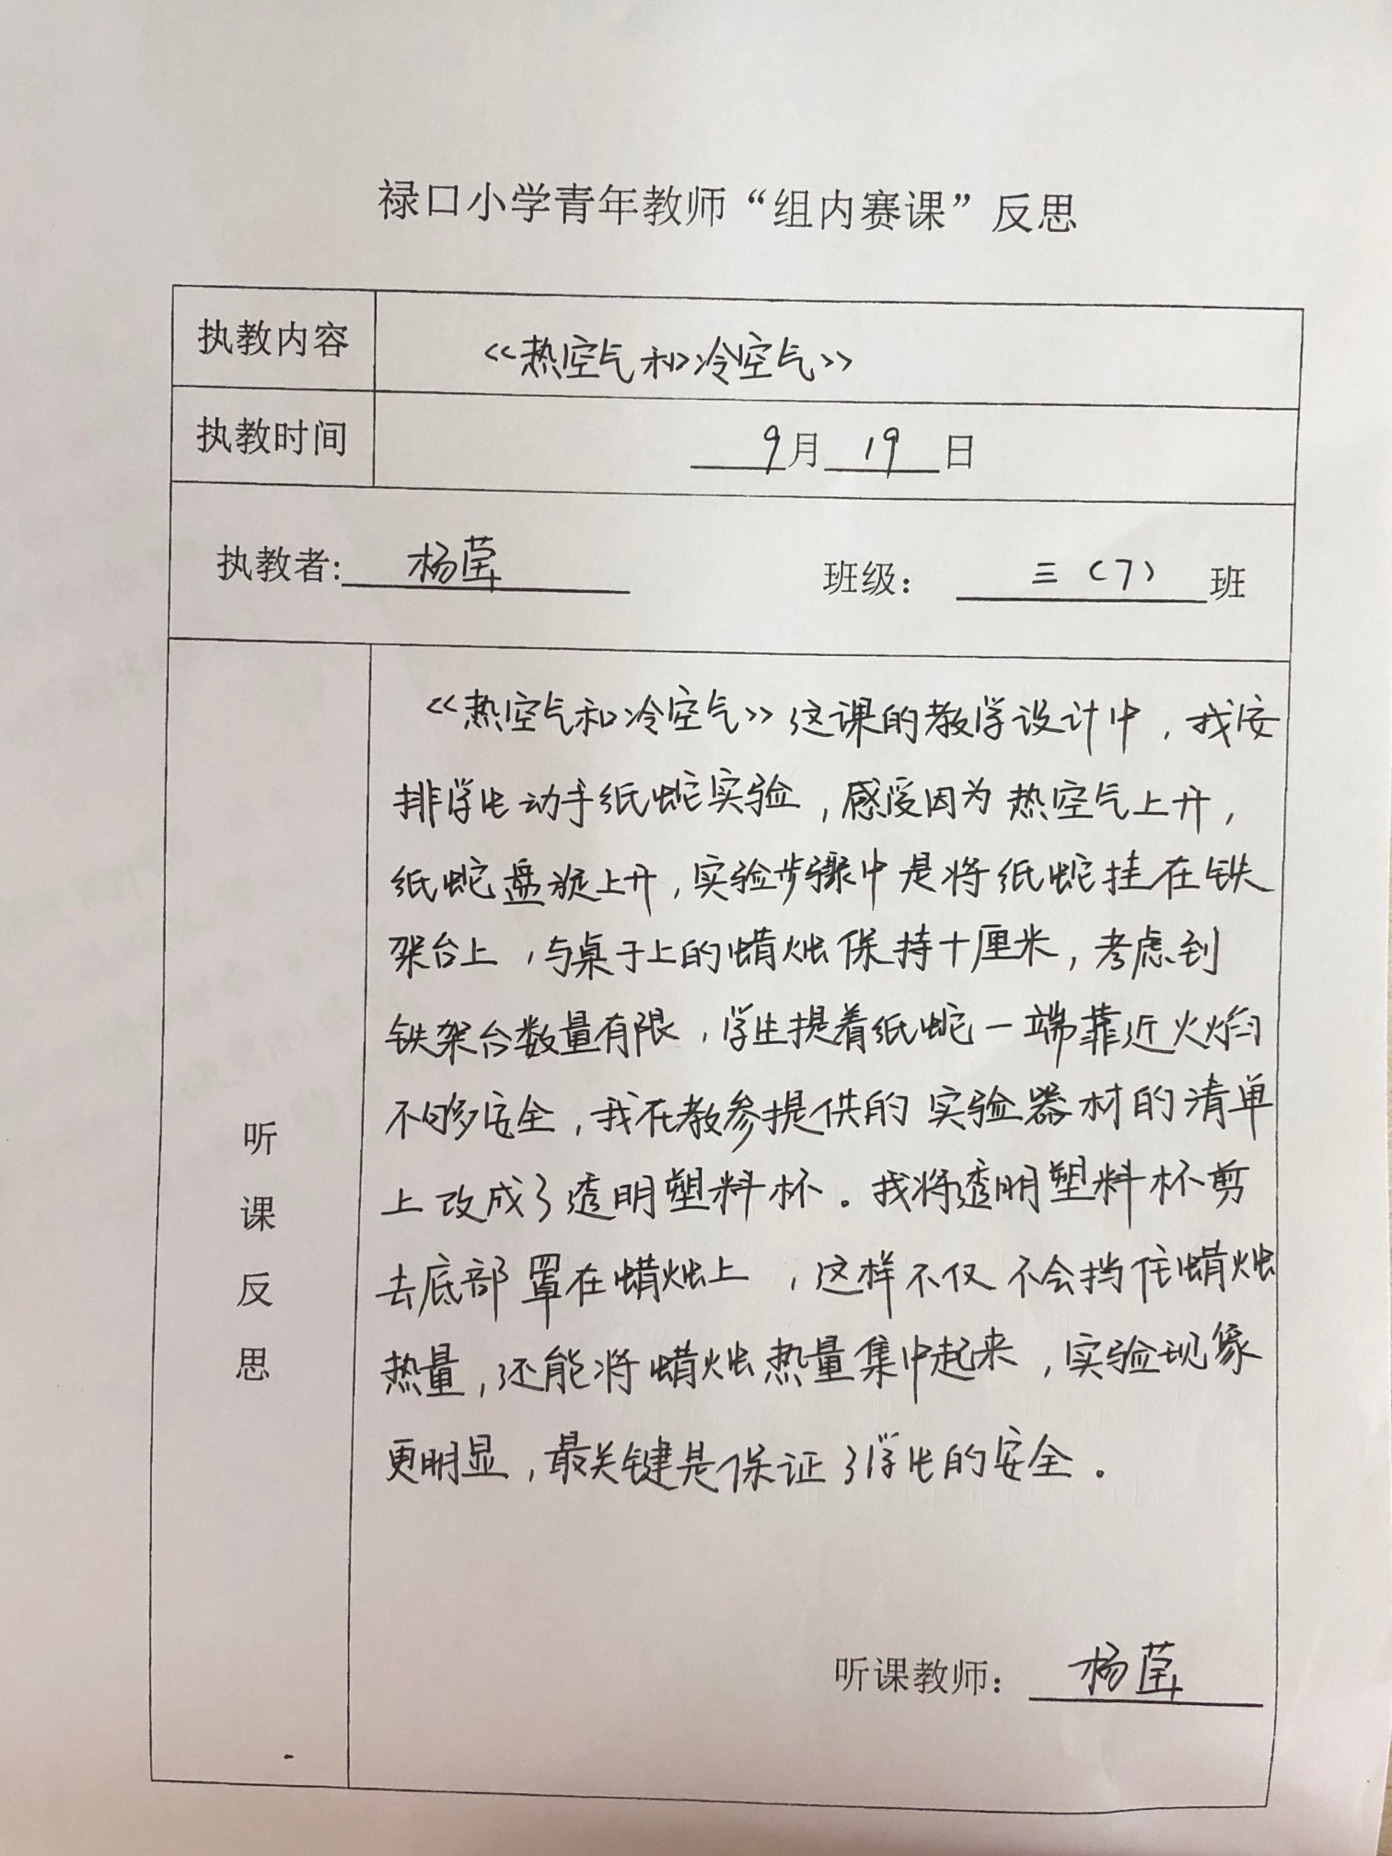 禄口小学青年教师“组内赛课”反思
执教内容 《热空气和冷空气》
执教时间 9月 19 日
执教者: 杨莹 班级： 三（7） 班
听课反思
《热空气和冷空气》这课的教学设计中，我安
排学生动手纸蛇实验，感受因为热空气上升，
纸蛇盘旋上升，实验步骤中是将纸蛇挂在铁
架台上，与桌子上的蜡烛保持十厘米，考虑到
铁架台数量有限，学生提着纸蛇一端靠近火焰
不够安全，我在教参提供的实验器材的清单
上改成了透明塑料杯。我将透明塑料杯剪
去底部罩在蜡烛上，这样不仅不会挡住蜡烛
热量，还能将蜡烛热量集中起来，实验现象
更明显，最关键是保证了学生的安全。
听课教师： 杨莹